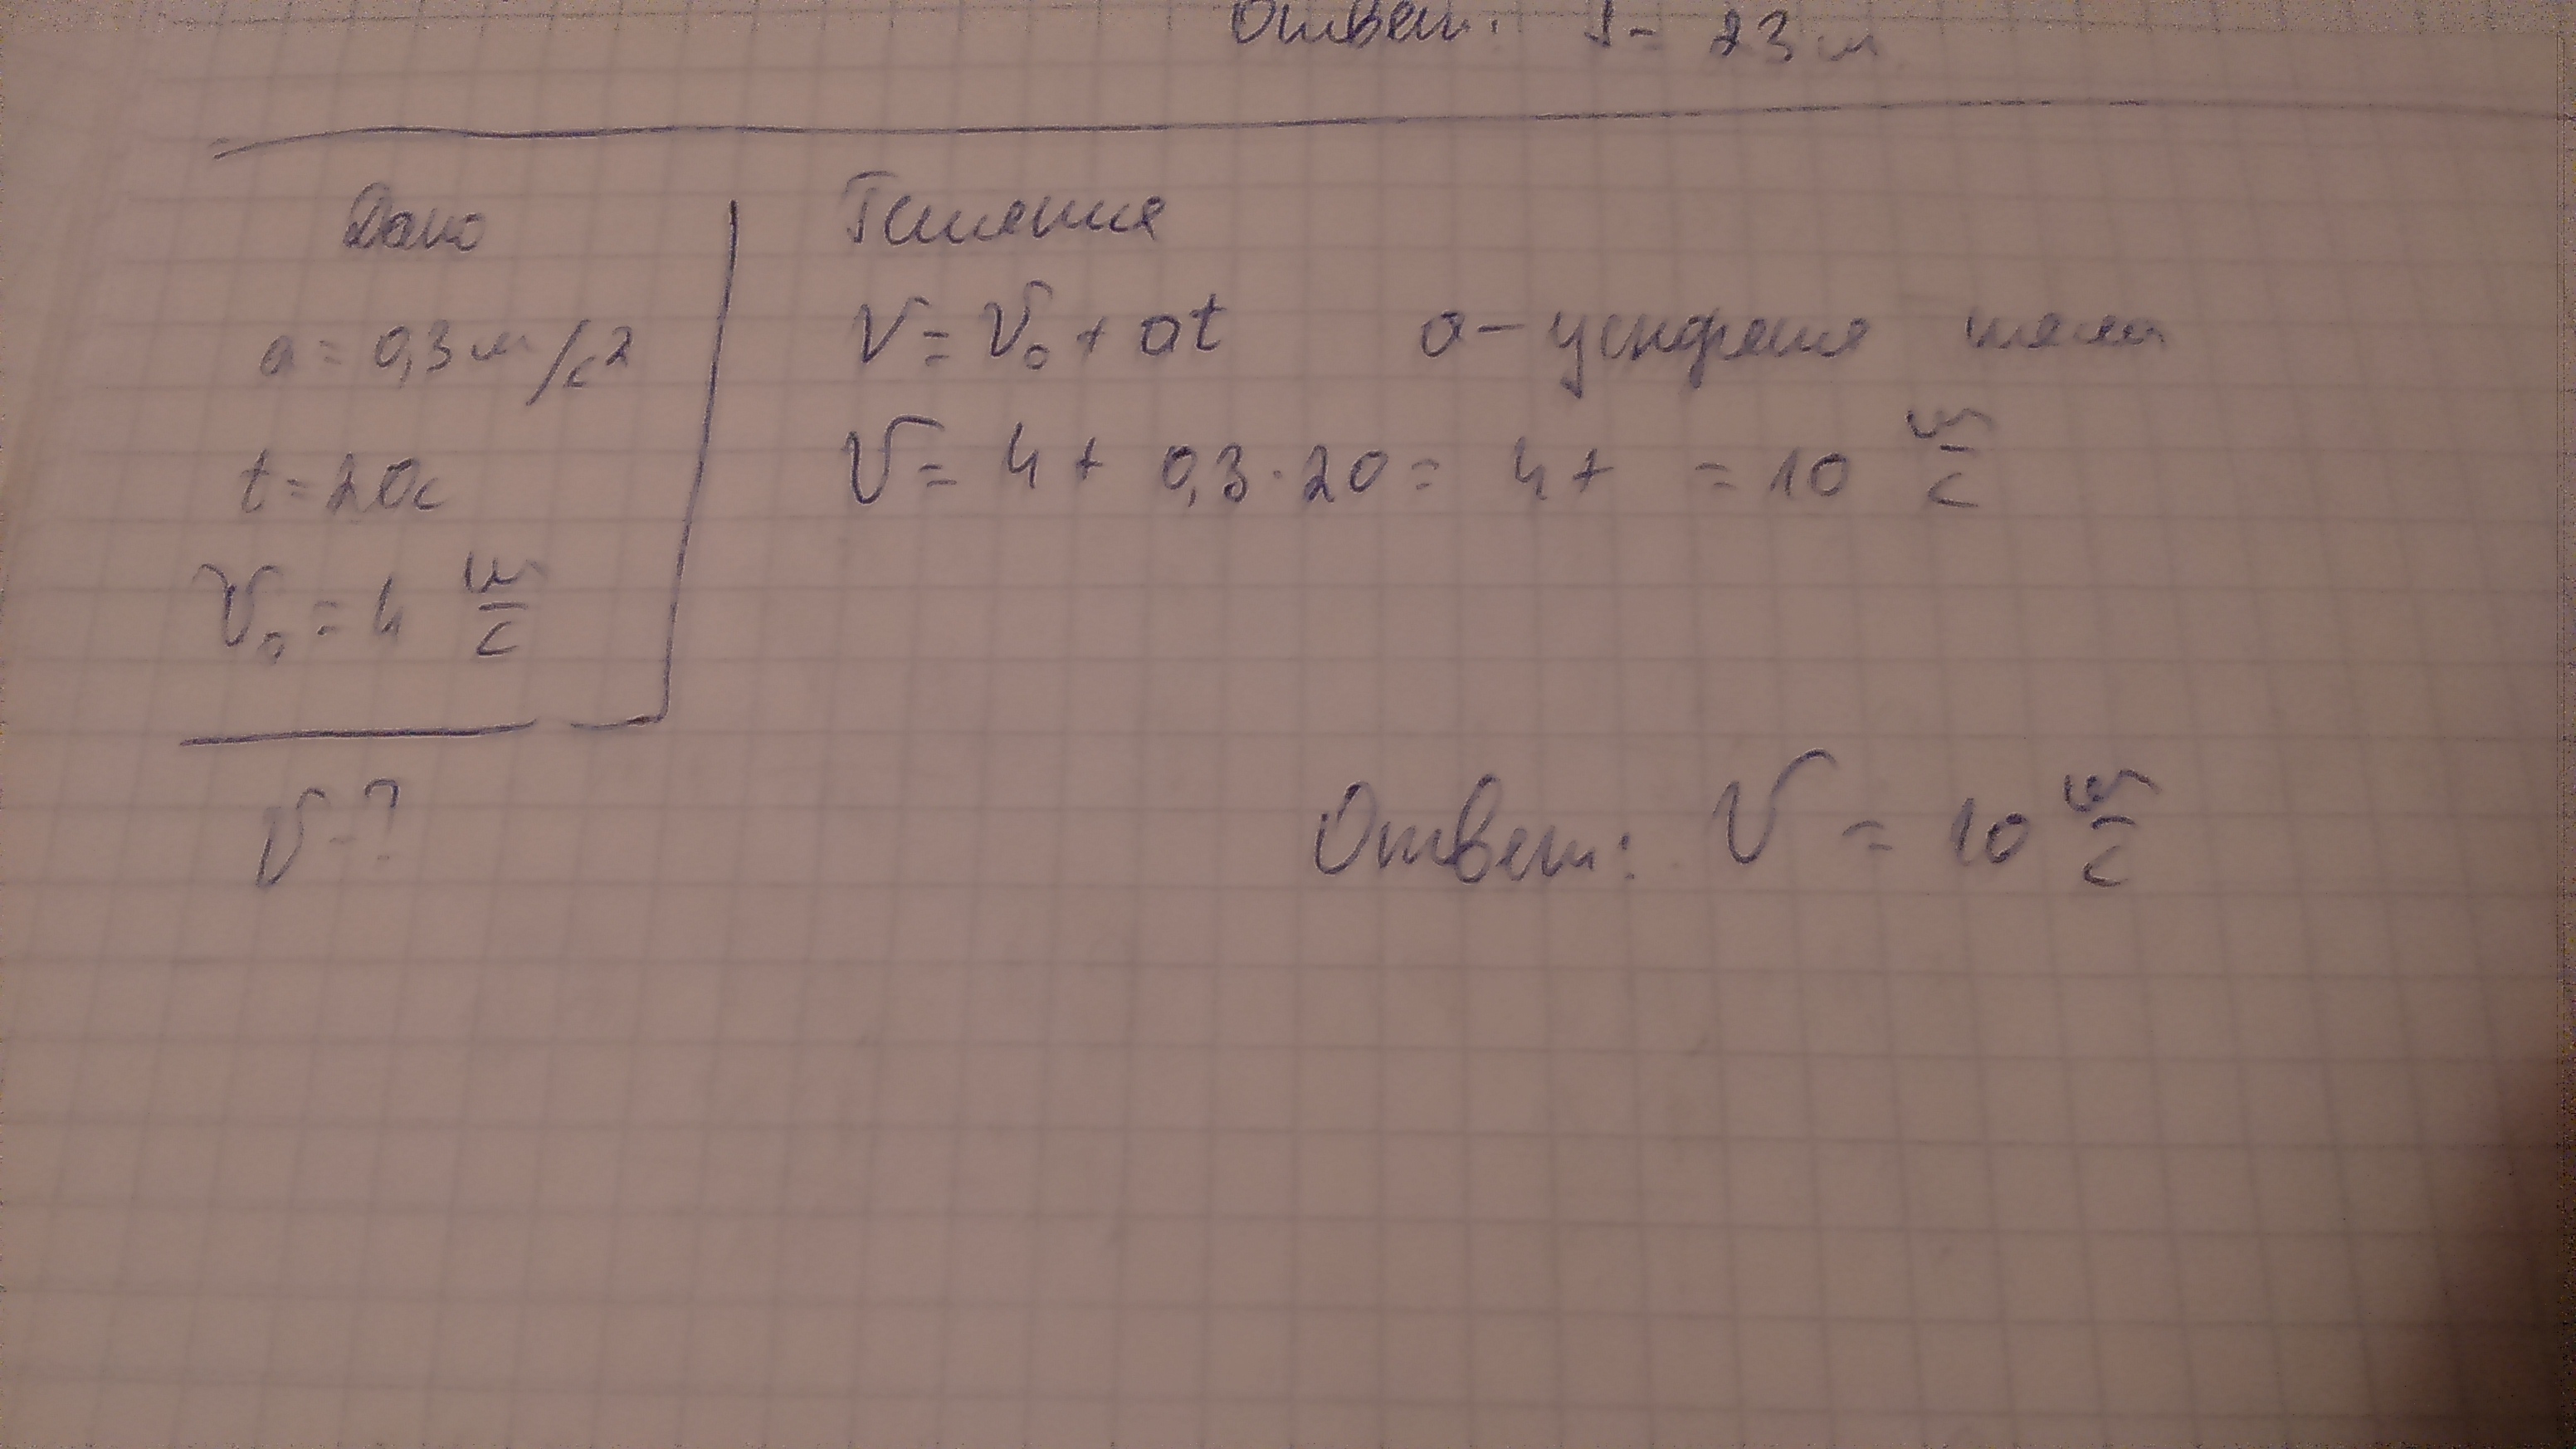 Ответ: S = 23 м
Дано
a = 0,3 м/с2
t = 20с
V₀ = 4 м/с
V - ?
Решение
V = V₀ + at a - ускорение тела
V = 4 + 0,3 · 20 = 4 + = 10 м/с
Ответ: V = 10 м/с